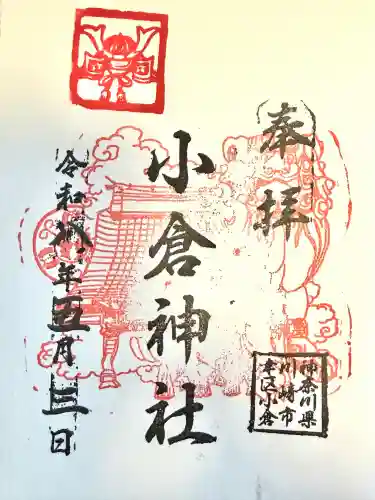 奉拝
小倉神社
令和 年五月三日
神奈川県
川崎市
幸区小倉